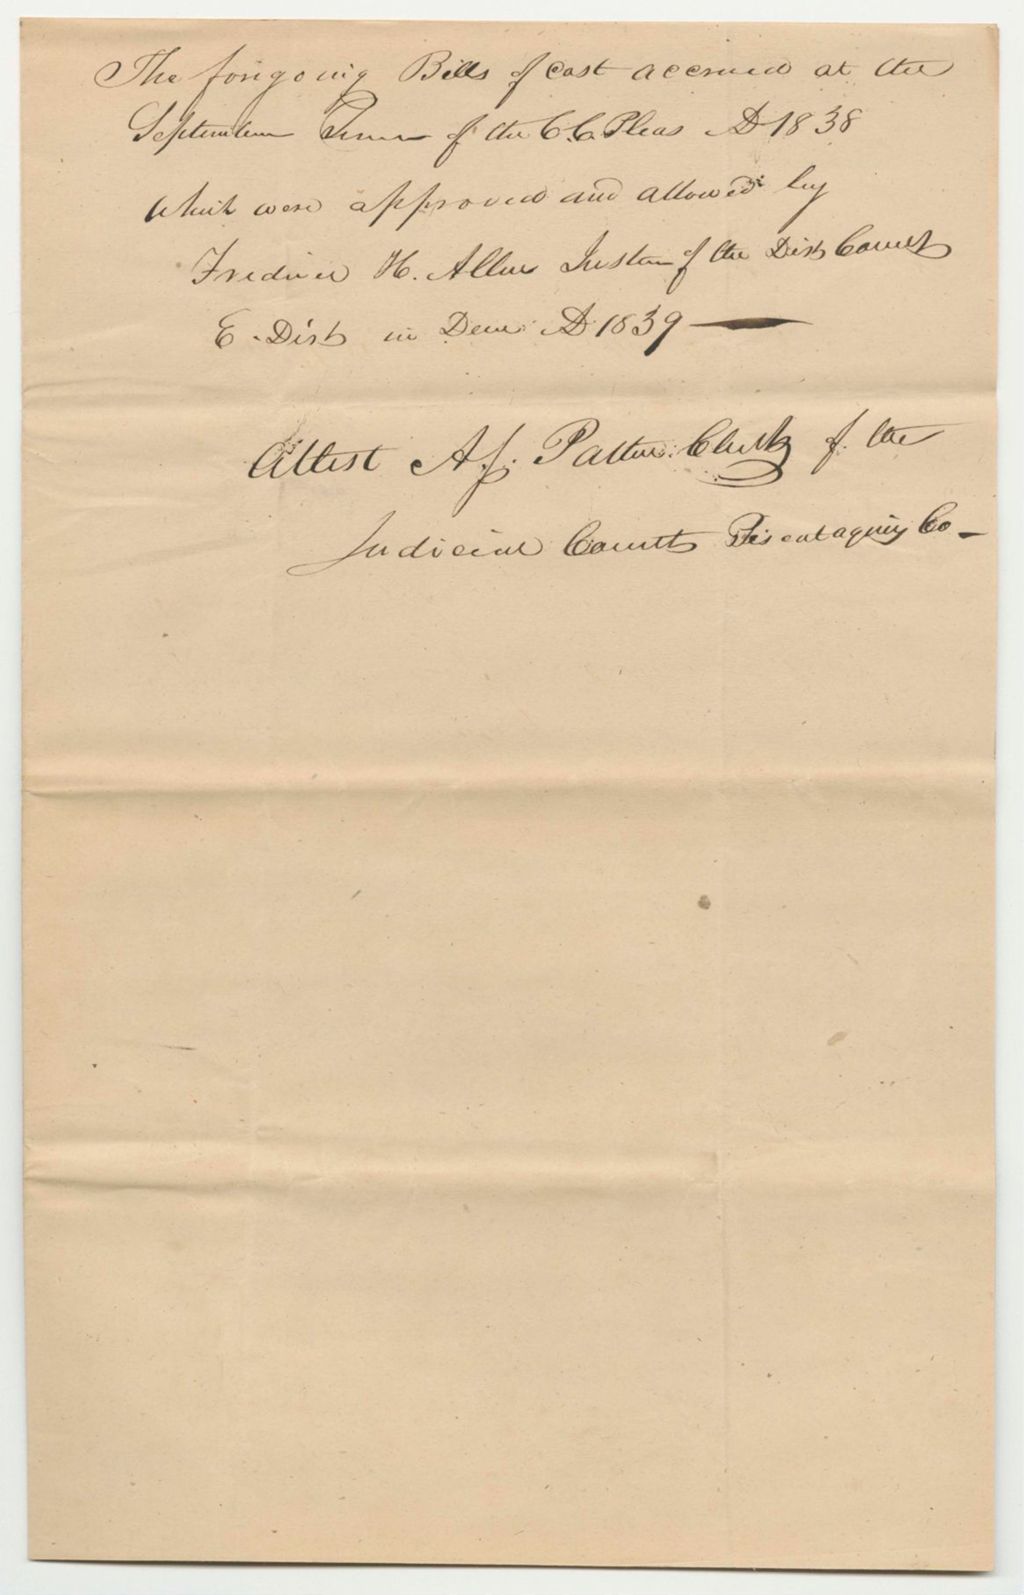 The forigoing Bills of Cost accrued at the
September Term of the C.C. Pleas AD 1838
which were approved and allowed by
Fredric H. Allen Justice of the Dist Court
E. Dist in Decr AD 1839
Attest A. J. Patten Clerk of the
Judicial Courts Piscataquis Co